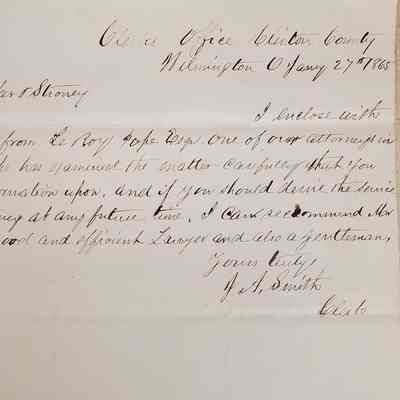 Clerks Office Clinton County
Wilmington O Jany 27th 1865
Stroney
I enclose with
from Le Roy Pope Esqr one of our attorneys in
has examined the matter carefully that you
upon, and if you should desire the service
at any future time, I can recommend Mr
good and efficient Lawyer and also a gentleman,
Yours truly,
J A. Smith
Clerk